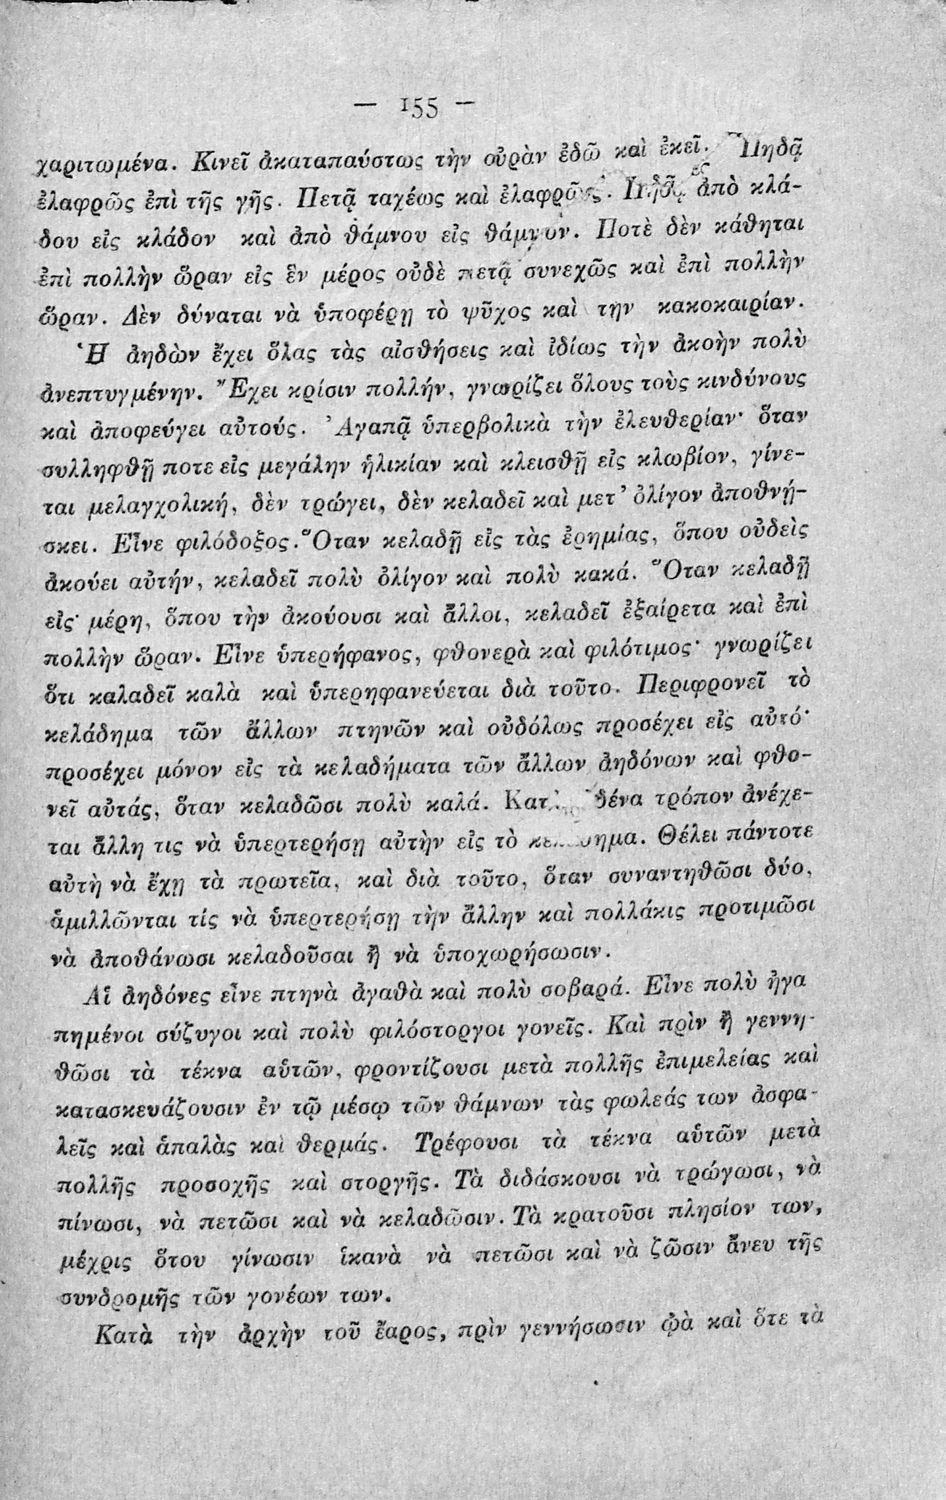 — 155 —
χαριτωμένα. Κινεῖ ἀκαταπαύστως τὴν οὐρὰν ἐδῶ καὶ ἐκεῖ. Πηδᾷ
ἐλαφρῶς ἐπὶ τῆς γῆς. Πετᾷ ταχέως καὶ ἐλαφρῶς. Πηδᾷ ἀπὸ κλά-
δου εἰς κλάδον καὶ ἀπὸ θάμνου εἰς θάμνον. Ποτὲ δὲν κάθηται
ἐπὶ πολλὴν ὥραν εἰς ἓν μέρος οὐδὲ πετᾷ συνεχῶς καὶ ἐπὶ πολλὴν
ὥραν. Δὲν δύναται νὰ ὑποφέρῃ τὸ ψῦχος καὶ την κακοκαιρίαν.
Ἡ ἀηδὼν ἔχει ὅλας τὰς αἰσθήσεις καὶ ἰδίως τὴν ἀκοὴν πολὺ
ἀνεπτυγμένην. Ἔχει κρίσιν πολλήν, γνωρίζει ὅλους τοὺς κινδύνους
καὶ ἀποφεύγει αὐτούς. Ἀγαπᾷ ὑπερβολικὰ τὴν ἐλευθερίαν· ὅταν
συλληφθῇ ποτε εἰς μεγάλην ἡλικίαν καὶ κλεισθῇ εἰς κλωβίον, γίνε-
ται μελαγχολική, δὲν τρώγει, δὲν κελαδεῖ καὶ μετ' ὀλίγον ἀποθνή-
σκει. Εἶνε φιλόδοξος. Ὅταν κελαδῇ εἰς τὰς ἐρημίας, ὅπου οὐδεὶς
ἀκούει αὐτήν, κελαδεῖ πολὺ ὀλίγον καὶ πολὺ κακά. Ὅταν κελαδῇ
εἰς μέρη, ὅπου τὴν ἀκούουσι καὶ ἄλλοι, κελαδεῖ ἐξαίρετα καὶ ἐπὶ
πολλὴν ὥραν. Εἶνε ὑπερήφανος, φθονερὰ καὶ φιλότιμος· γνωρίζει
ὅτι καλαδεῖ καλὰ καὶ ὑπερηφανεύεται διὰ τοῦτο. Περιφρονεῖ τὸ
κελάδημα τῶν ἄλλων πτηνῶν καὶ οὐδόλως προσέχει εἰς αὐτό·
προσέχει μόνον εἰς τὰ κελαδήματα τῶν ἄλλων ἀηδόνων καὶ φθο-
νεῖ αὐτάς, ὅταν κελαδῶσι πολὺ καλά. τρόπον ἀνέχε-
ται ἄλλη τις νὰ ὑπερτερήσῃ αὐτὴν εἰς τὸ Θέλει πάντοτε
αὐτὴ νὰ ἔχῃ τὰ πρωτεῖα, καὶ διὰ τοῦτο, ὅταν συναντηθῶσι δύο,
ἁμιλλῶνται τίς νὰ ὑπερτερήσῃ τὴν ἄλλην καὶ πολλάκις προτιμῶσι
νὰ ἀποθάνωσι κελαδοῦσαι ἢ νὰ ὑποχωρήσωσιν.
Αἱ ἀηδόνες εἶνε πτηνὰ ἀγαθὰ καὶ πολὺ σοβαρά. Εἶνε πολὺ ἠγα
πημένοι σύζυγοι καὶ πολὺ φιλόστοργοι γονεῖς. Καὶ πρὶν ἢ γεννη-
θῶσι τὰ τέκνα αὑτῶν, φροντίζουσι μετὰ πολλῆς ἐπιμελείας καὶ
κατασκευάζουσιν ἐν τῷ μέσῳ τῶν θάμνων τὰς φωλεάς των ἀσφα-
λεῖς καὶ ἁπαλὰς καὶ θερμάς. Τρέφουσι τὰ τέκνα αὑτῶν μετὰ
πολλῆς προσοχῆς καὶ στοργῆς. Τὰ διδάσκουσι νὰ τρώγωσι, νὰ
πίνωσι, νὰ πετῶσι καὶ νὰ κελαδῶσιν. Τὰ κρατοῦσι πλησίον των,
μέχρις ὅτου γίνωσιν ἱκανὰ νὰ πετῶσι καὶ νὰ ζῶσιν ἄνευ τῆς
συνδρομῆς τῶν γονέων των.
Κατὰ τὴν ἀρχὴν τοῦ ἔαρος, πρὶν γεννήσωσιν ᾠὰ καὶ ὅτε τὰ